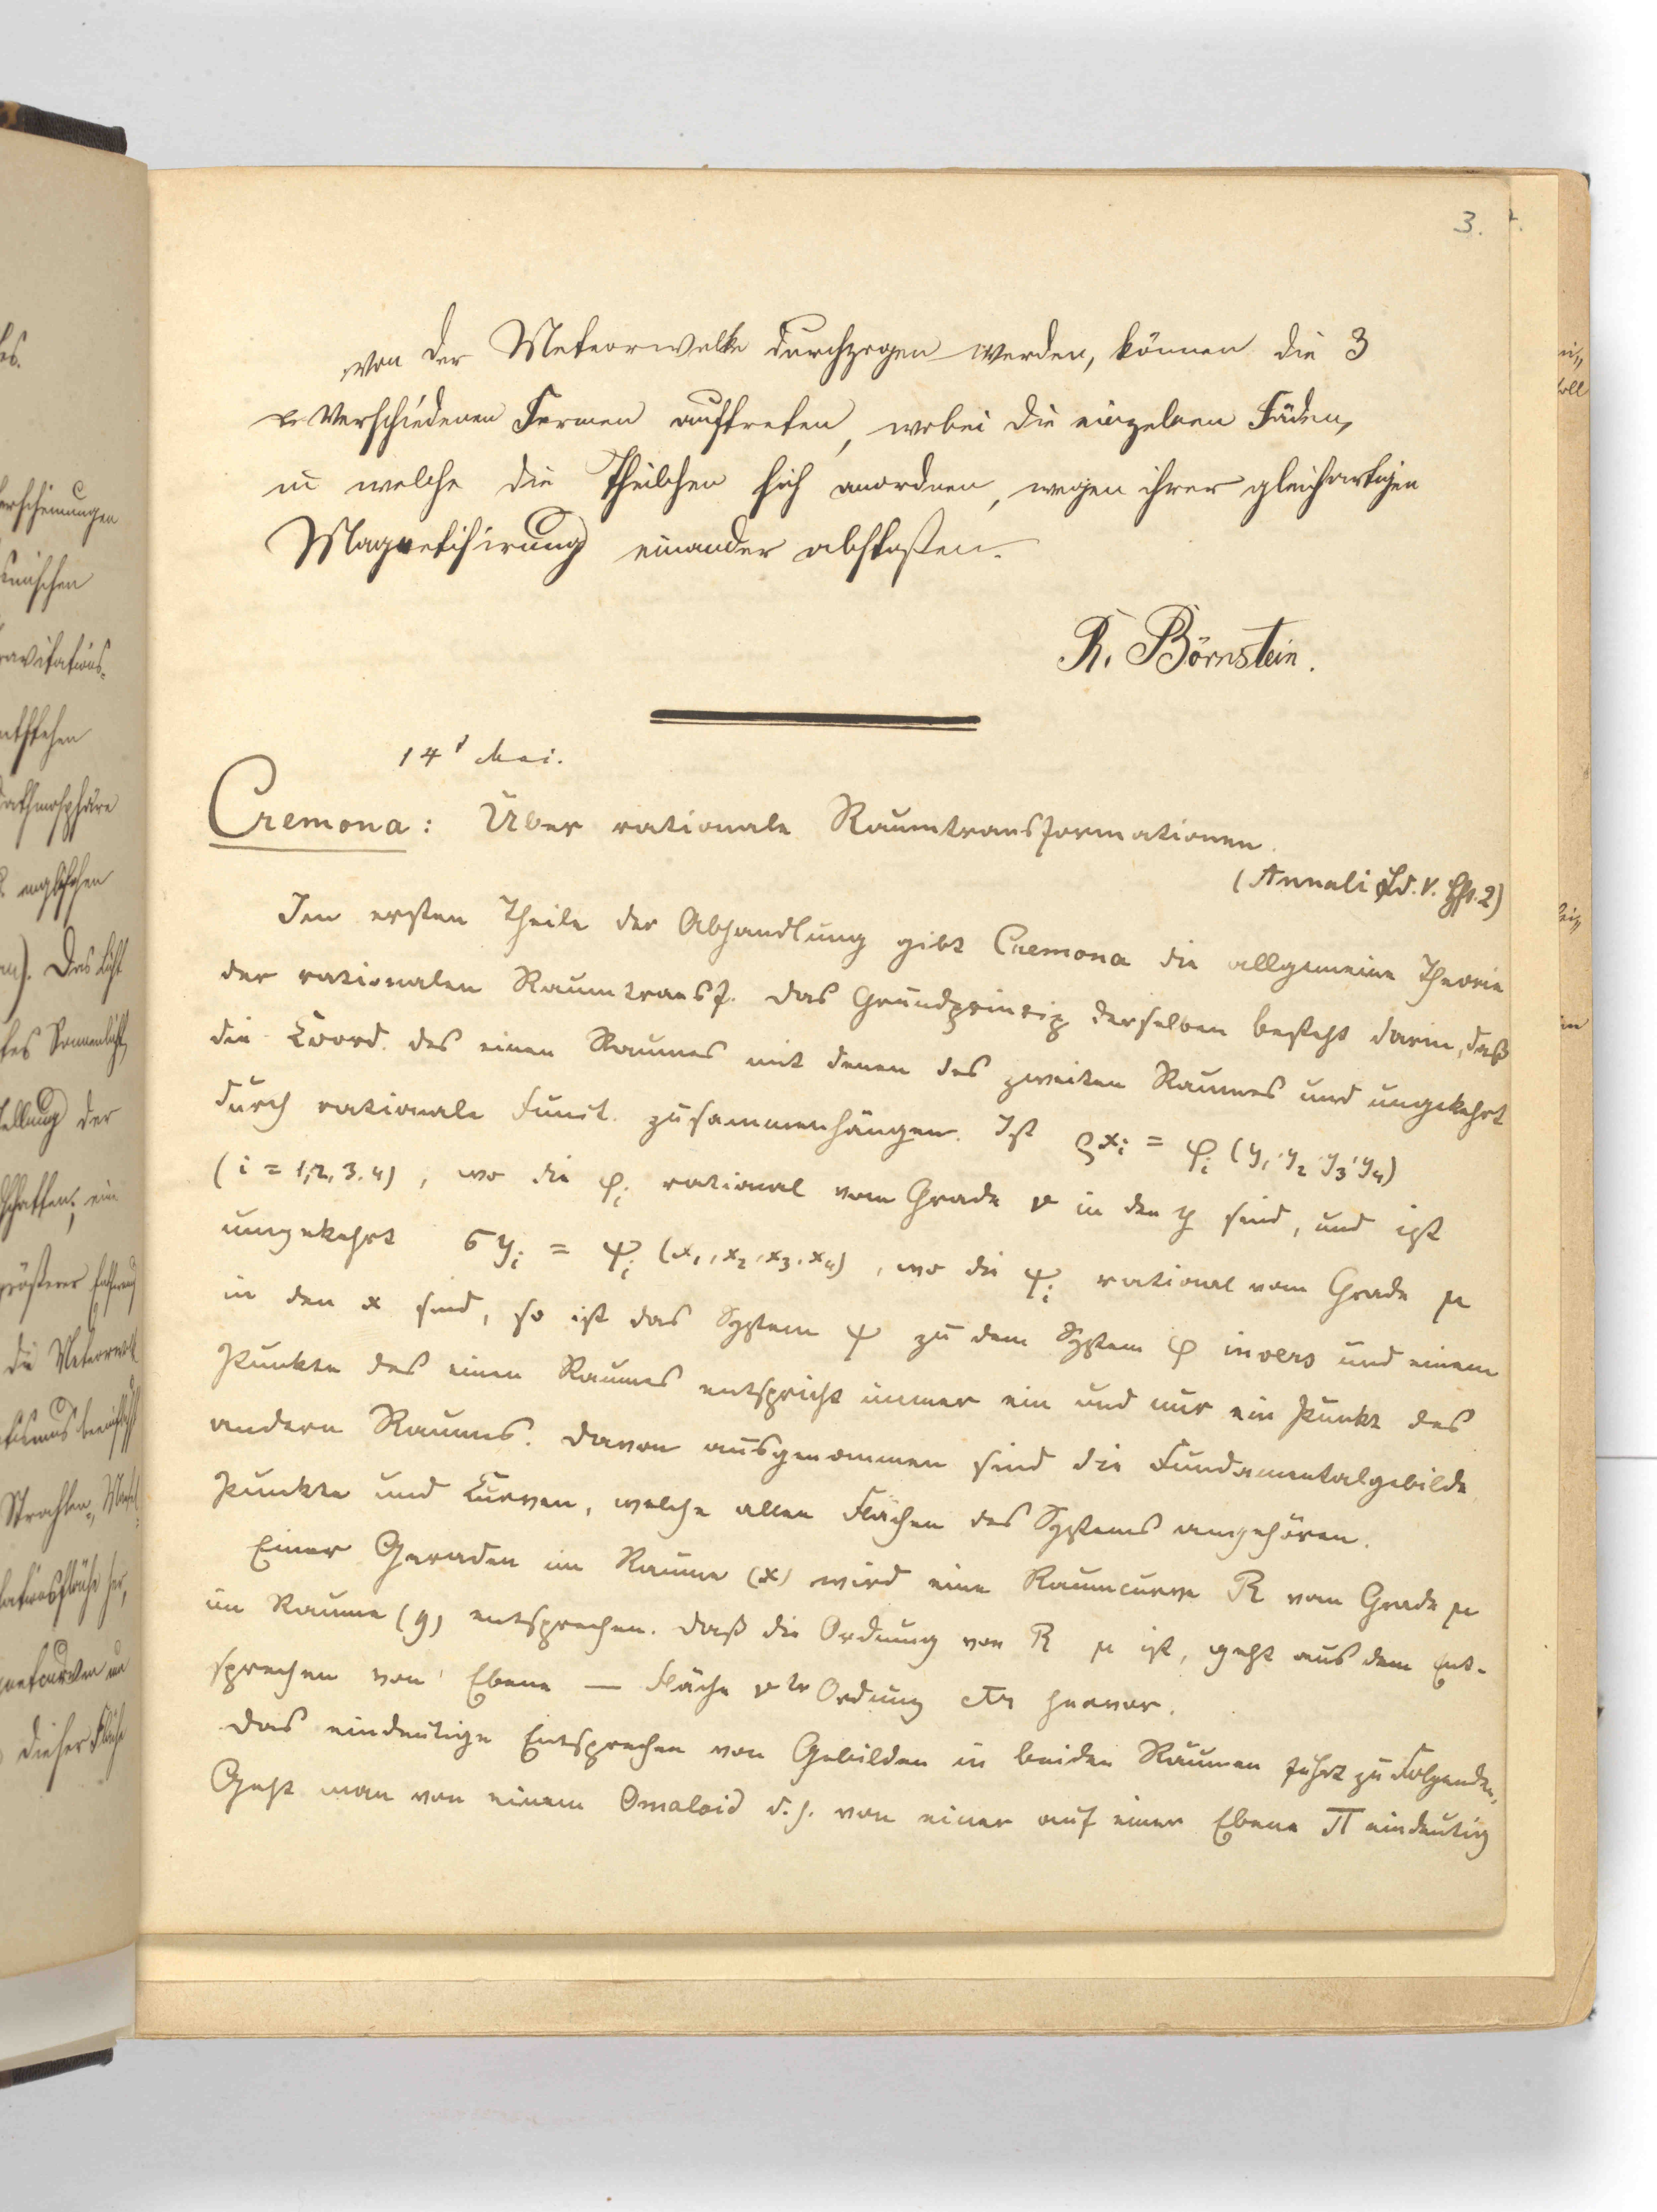 3.
von der Meteorwolke durchzogen werden, können die 3
verschiedenen Formen auftreten, wobei die einzelnen Fäden,
in welche die Theilchen sich anordnen, wegen ihrer gleichartigen
Magnetisirung einander abstoßen.
R. Börnstein.
14 Mai.
Cremona: Über rationale Raumtransformationen.
(Annali Bd. V. Hft. 2)
Im ersten Theile der Abhandlung gibt Cremona die allgemeine Theorie
der rationalen Raumtransf. Das Grundprincip derselben besteht darin, daß
die Coord. des einen Raumes mit denen des zweiten Raumes und umgekehrt
durch rationale Funct. zusammenhängen. Ist ϱxᵢ = φᵢ (y₁, y₂, y₃, y₄)
(i = 1, 2, 3, 4), wo die φᵢ rational vom Grade ν in den y sind, und ist
umgekehrt σyᵢ = ψᵢ (x₁, x₂, x₃, x₄), wo die ψᵢ rational vom Grade μ
in den x sind, so ist das System ψ zu dem System φ invers und einem
Punkte des einen Raumes entspricht immer ein und nur ein Punkt des
andern Raumes. Davon ausgenommen sind die Fundamentalgebilde,
Punkte und Curven, welche allen Flächen des Systems angehören.
Einer Geraden im Raume (x) wird eine Raumcurve R vom Grade μ
im Raume (y) entsprechen. Daß die Ordnung von R μ ist, geht aus dem Ent-
sprechen von Ebene — Fläche νter Ordnung etc hervor.
Das eindeutige Entsprechen von Gebilden in beiden Räumen führt zu Folgendem.
Geht man von einem Omaloid d. h. von einer auf einer Ebene Π eindeutig